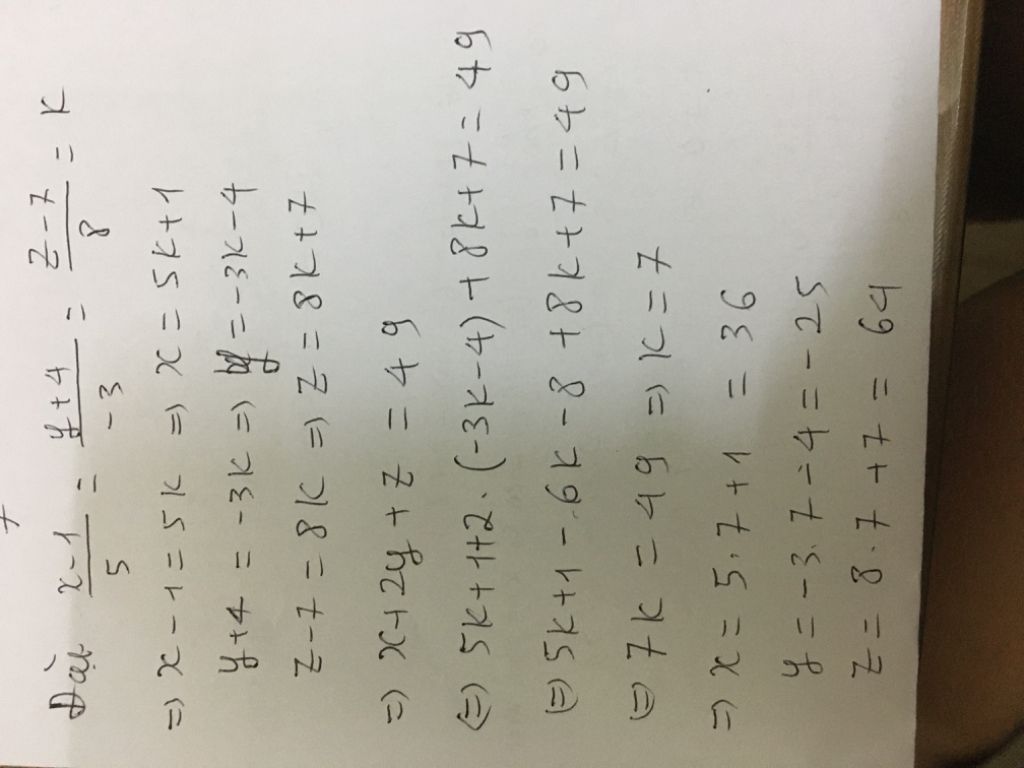 Đặt x-1/5 = y+4/-3 = z-7/8 = k
=) x-1=5k =) x=5k+1
y+4=-3k =) y=-3k-4
z-7=8k =) z=8k+7
=) x+2y+z=49
(=) 5k+1+2.(-3k-4)+8k+7=49
(=) 5k+1-6k-8+8k+7=49
(=) 7k=49 =) k=7
=) x=5.7+1=36
y=-3.7-4=-25
z=8.7+7=64